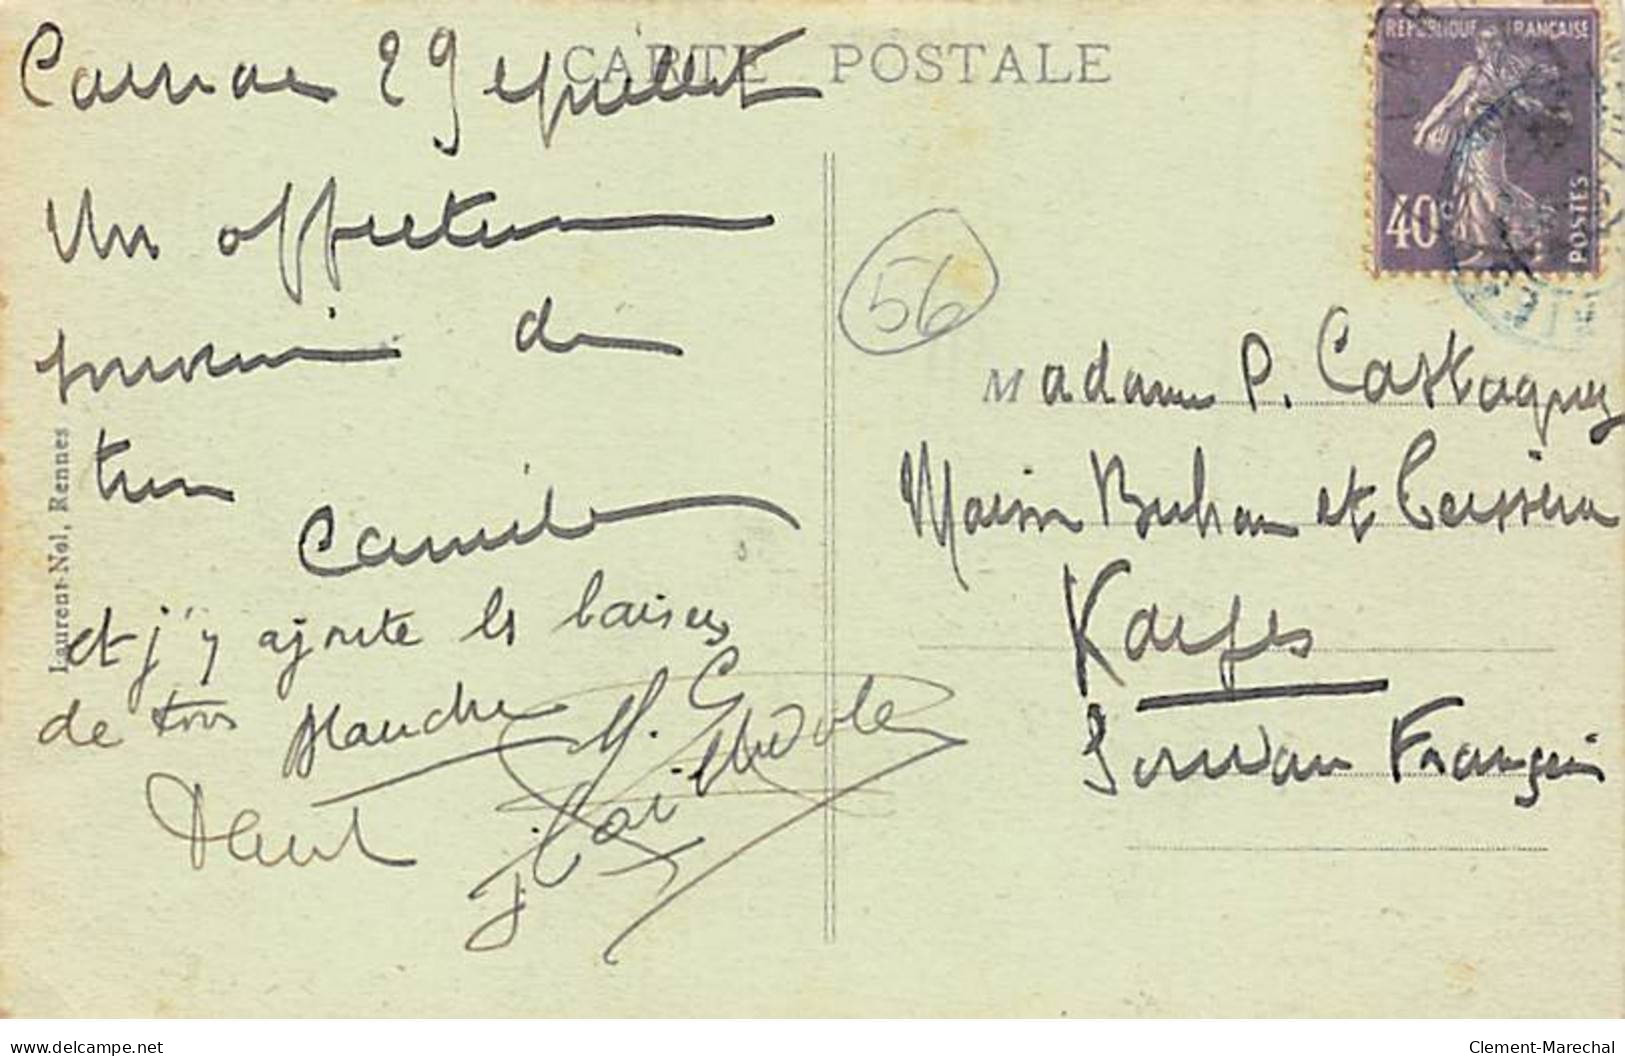 CARTE POSTALE
Carnac 29 Juillet
Un affectueux
souvenir de
ton
Camille
et j'y ajoute les baisers
de tous Blanche
M.
56
REPUBLIQUE FRANÇAISE
40
POSTES
Madame P. Castagnez
Maison Buhan et Teissère
Kayes
Soudan Français
Laurent-Nel, Rennes
delcampe.net
Clement-Marechal